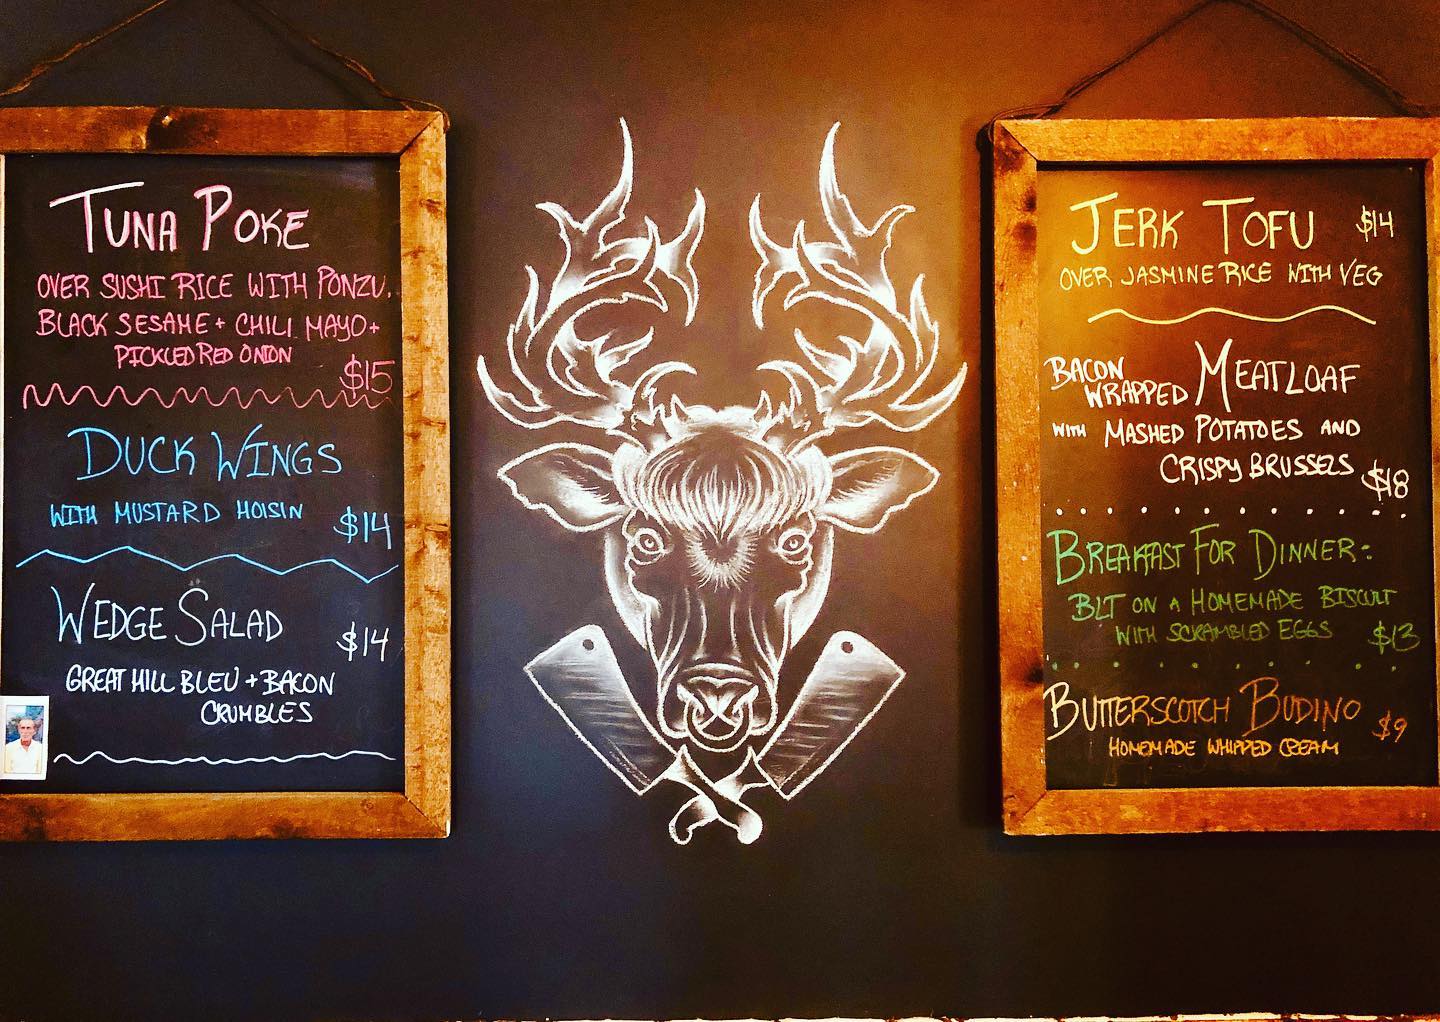 TUNA POKE
OVER SUSHI RICE WITH PONZU,
BLACK SESAME + CHILI MAYO +
PICKLED RED ONION
$15
DUCK WINGS
WITH MUSTARD HOISIN $14
WEDGE SALAD
$14
GREAT HILL BLEU + BACON
CRUMBLES
JERK TOFU $14
OVER JASMINE RICE WITH VEG
BACON
WRAPPED MEATLOAF
WITH MASHED POTATOES AND
CRISPY BRUSSELS $18
BREAKFAST FOR DINNER:
BLT ON A HOMEMADE BISCUIT
WITH SCRAMBLED EGGS $13
BUTTERSCOTCH BUDINO $9
HOMEMADE WHIPPED CREAM